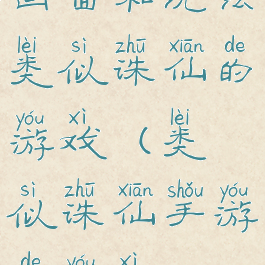 画面和玩法
lèi sì zhū xiān de
类似诛仙的
yóu xì lèi
游戏（类
sì zhū xiān shǒu yóu
似诛仙手游
de yóu xì